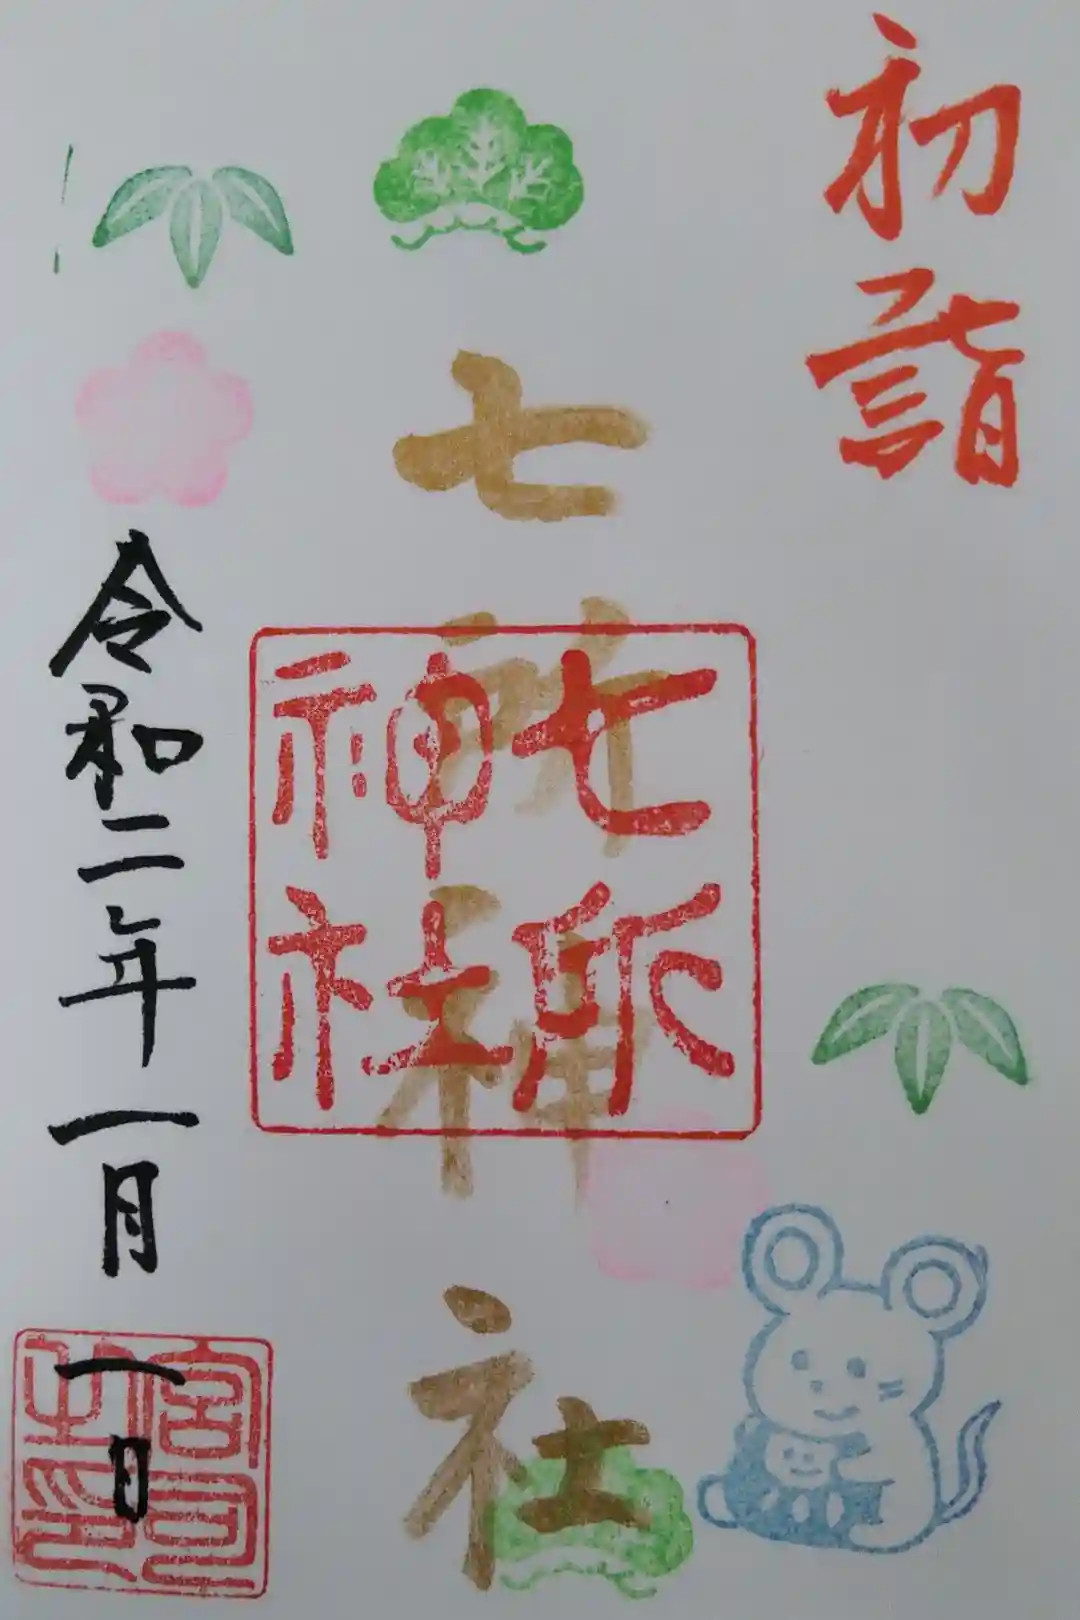 初詣
七所神社
七所神社
令和二年一月一日
宮司之印